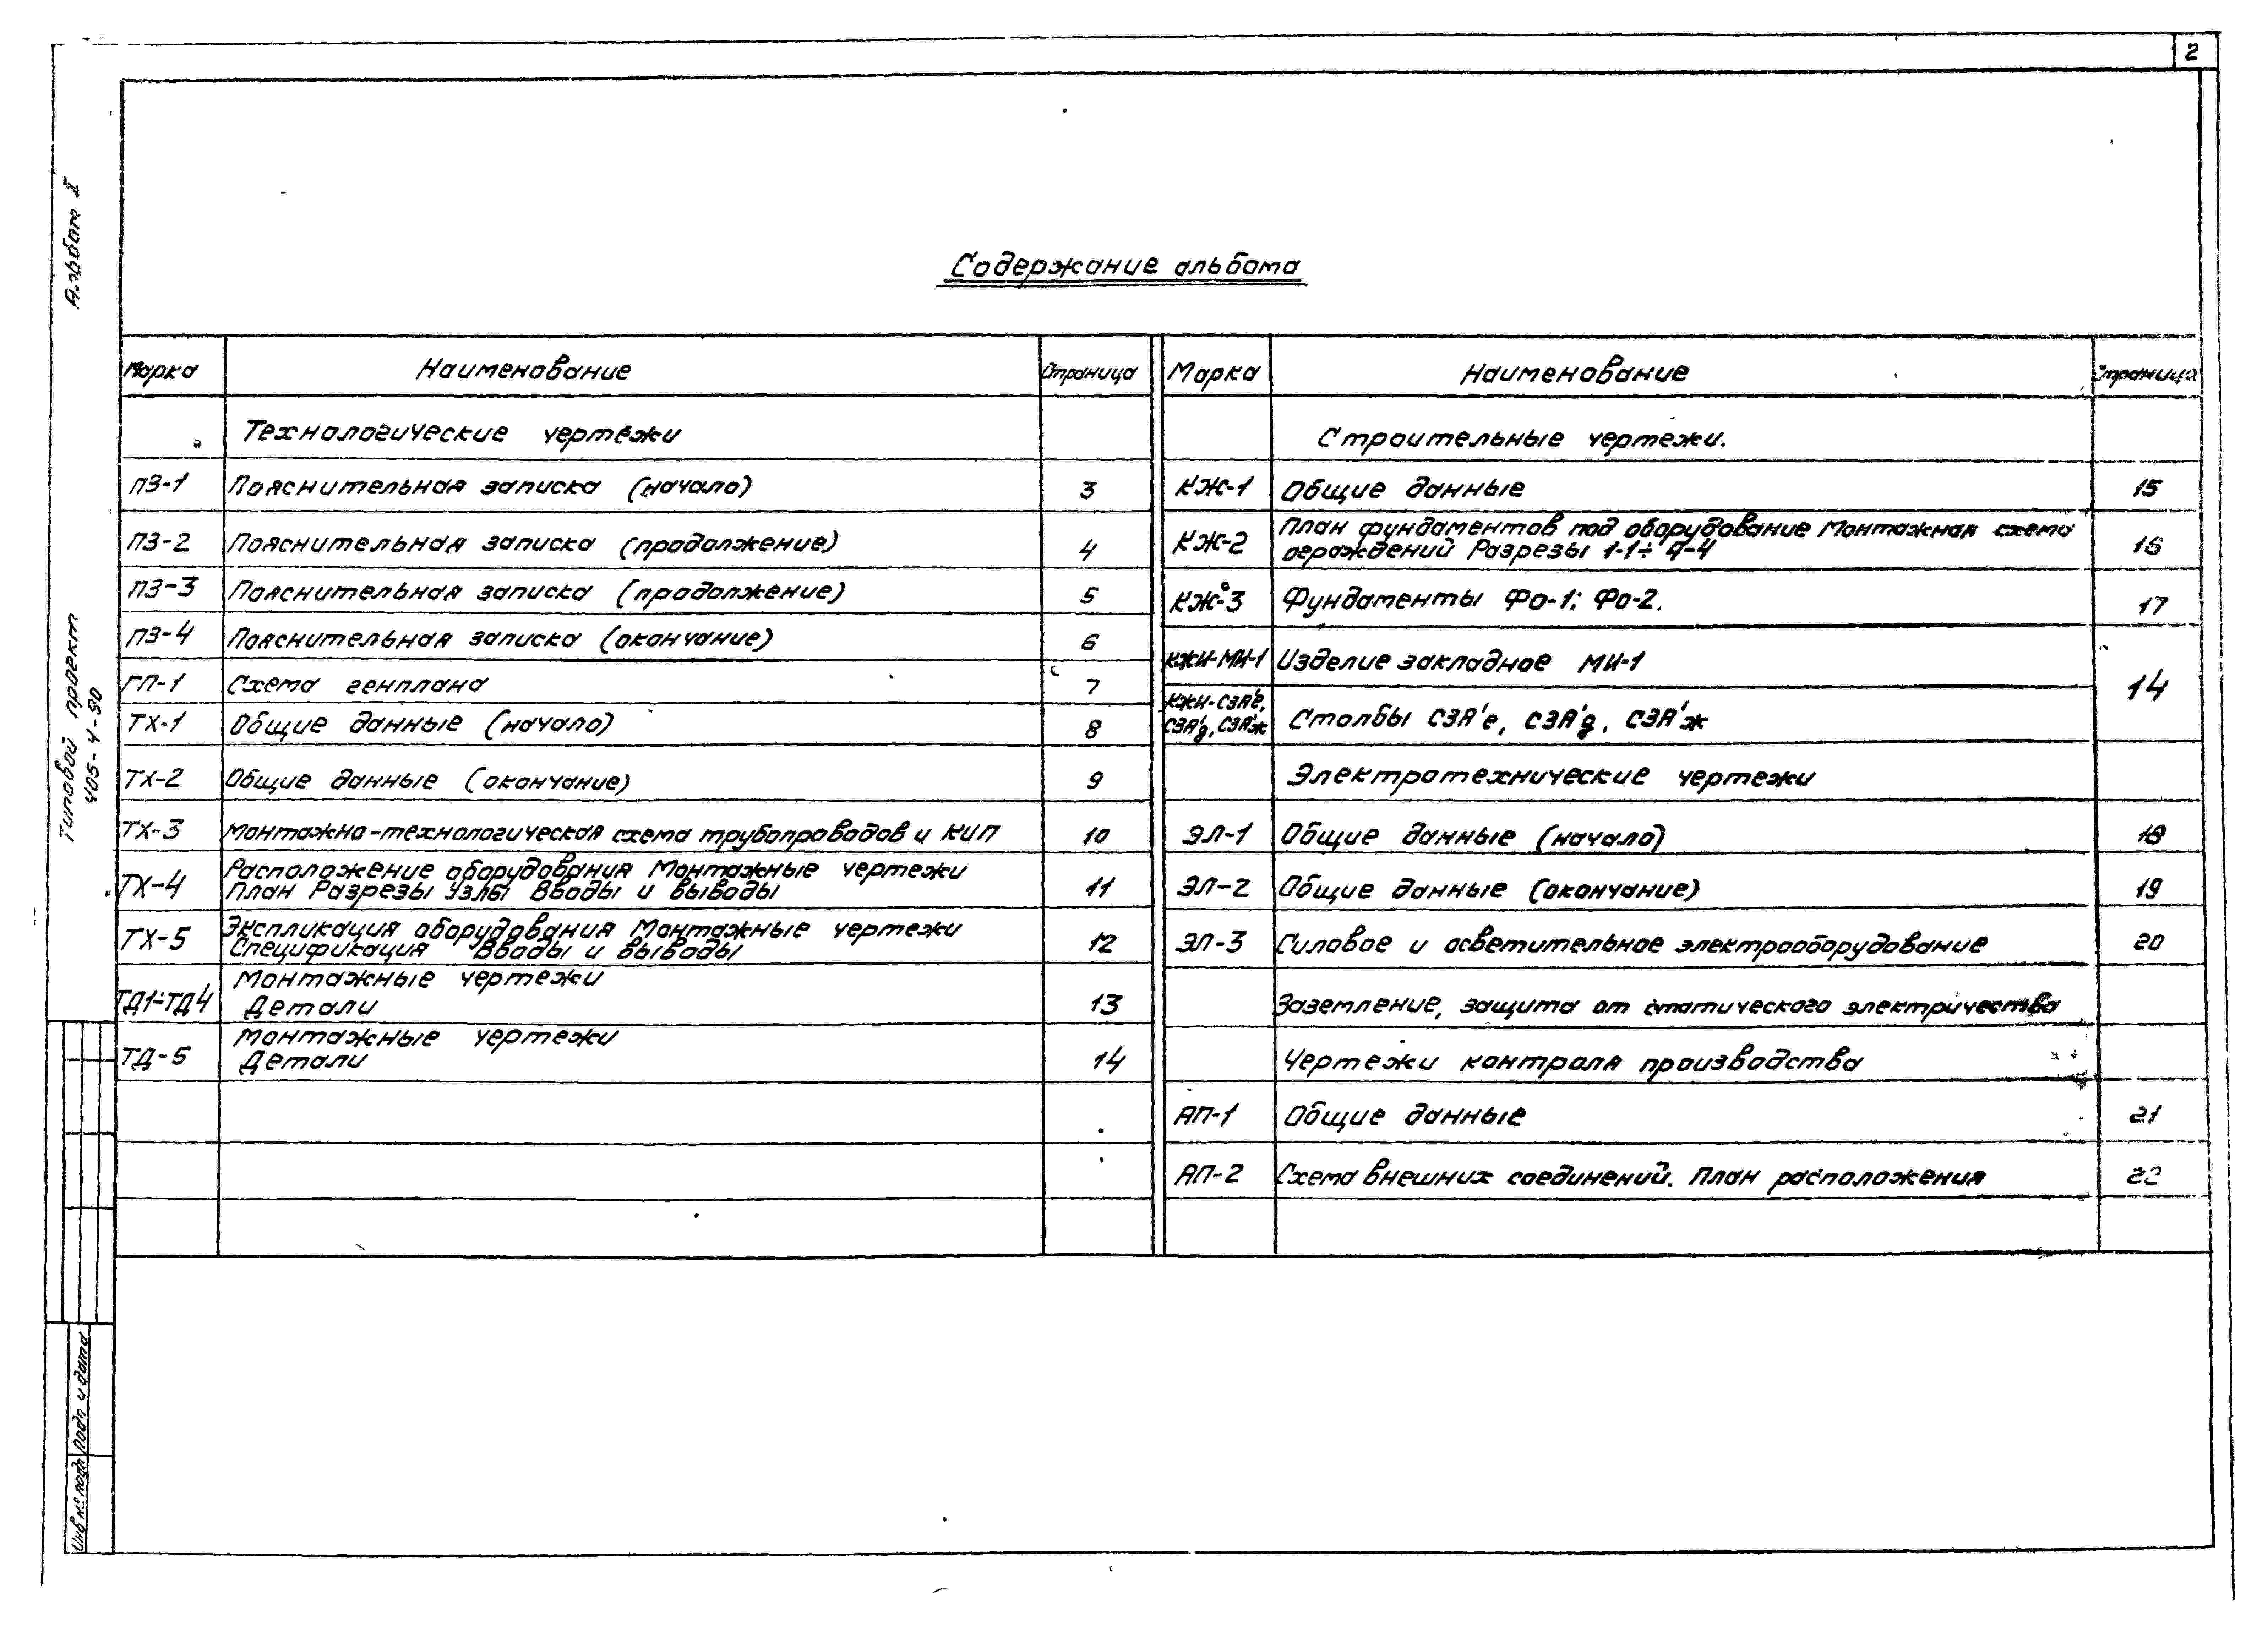 2
Альбом I
Типовой проект
405-4-90
Содержание альбома
Марка Наименование Страница
Технологические чертежи
ПЗ-1 Пояснительная записка (начало) 3
ПЗ-2 Пояснительная записка (продолжение) 4
ПЗ-3 Пояснительная записка (продолжение) 5
ПЗ-4 Пояснительная записка (окончание) 6
ГП-1 Схема генплана 7
ТХ-1 Общие данные (начало) 8
ТХ-2 Общие данные (окончание) 9
ТХ-3 Монтажно-технологическая схема трубопроводов и КИП 10
Расположение оборудования Монтажные чертежи
ТХ-4 План Разрезы Узлы Вводы и выводы 11
Экспликация оборудования Монтажные чертежи
ТХ-5 Спецификация Вводы и выводы 12
Монтажные чертежи
ТД1÷ТД4 Детали 13
Монтажные чертежи
ТД-5 Детали 14
Марка Наименование Страница
Строительные чертежи.
КЖ-1 Общие данные 15
План фундаментов под оборудование Монтажная схема
КЖ-2 ограждений Разрезы 1-1÷4-4 16
КЖ-3 Фундаменты ФО-1; ФО-2. 17
КЖИ-МИ-1 Изделие закладное МИ-1
14
КЖИ-СЗЯ'е,
СЗЯ'д, СЗЯ'ж Столбы СЗЯ'е, СЗЯ'д, СЗЯ'ж
Электротехнические чертежи
ЭЛ-1 Общие данные (начало) 18
ЭЛ-2 Общие данные (окончание) 19
ЭЛ-3 Силовое и осветительное электрооборудование 20
Заземление, защита от статического электричества
Чертежи контроля производства
АП-1 Общие данные 21
АП-2 Схема внешних соединений. План расположения 22
Подп и дата
Инв № подл